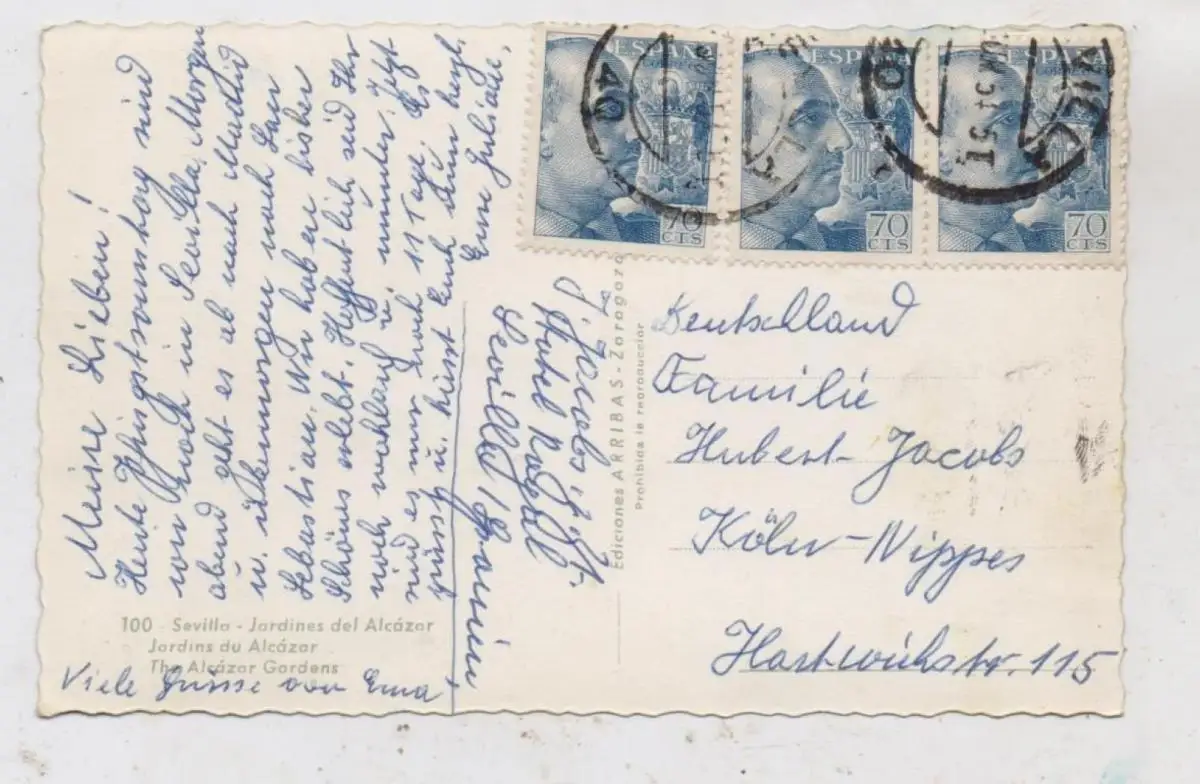 Meine Lieben!
Heute Pfingstsonntag sind
wir noch in Sevilla, Morgen
abend geht es ab nach Madrid
u. übermorgen nach San
Sebastian. Wir haben bisher
Schönes erlebt. Hoffentlich seid Ihr
noch wohlauf u. munter, jetzt
sind es nur noch 11 Tage. Es
grüsst u. küsst Euch
Eure
J. Jacobs, z. Zt.
Hotel
Sevilla / Spanien
100 - Sevilla - Jardines del Alcázar
Jardins du Alcázar
The Alcázar Gardens
Viele Grüsse von Erna
Ediciones ARRIBAS - Zaragoza
Prohibida la reproducción
ESPAÑA
70
CTS
ESPAÑA
70
CTS
ESPAÑA
70
CTS
40
Deutschland
Familie
Hubert Jacobs
Köln-Nippes
Hartwichstr. 115